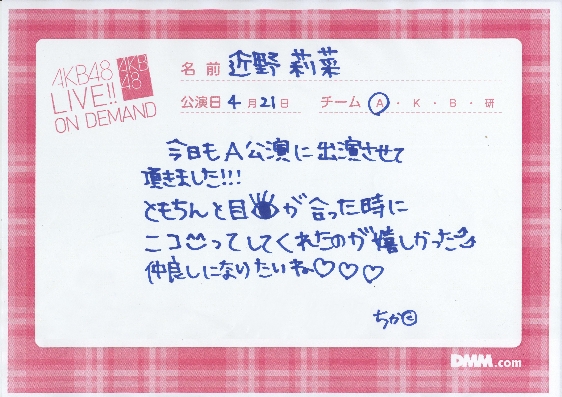 AKB48
LIVE!!
ON DEMAND
AKB
48
名前 近野莉菜
公演日 4月21日 チーム A・K・B・研
今日もA公演に出演させて
頂きました!!!
ともちんと目が合った時に
ニコってしてくれたのが嬉しかった
仲良しになりたいね♡♡♡
ちか
DMM.com